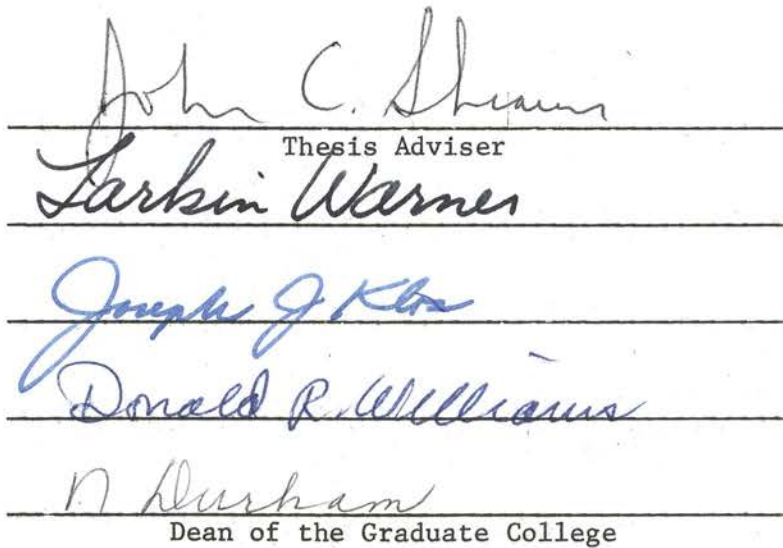 John C. Shearer
Thesis Adviser
Larkin Warner
Joseph J Klos
Donald R. Williams
N Durham
Dean of the Graduate College